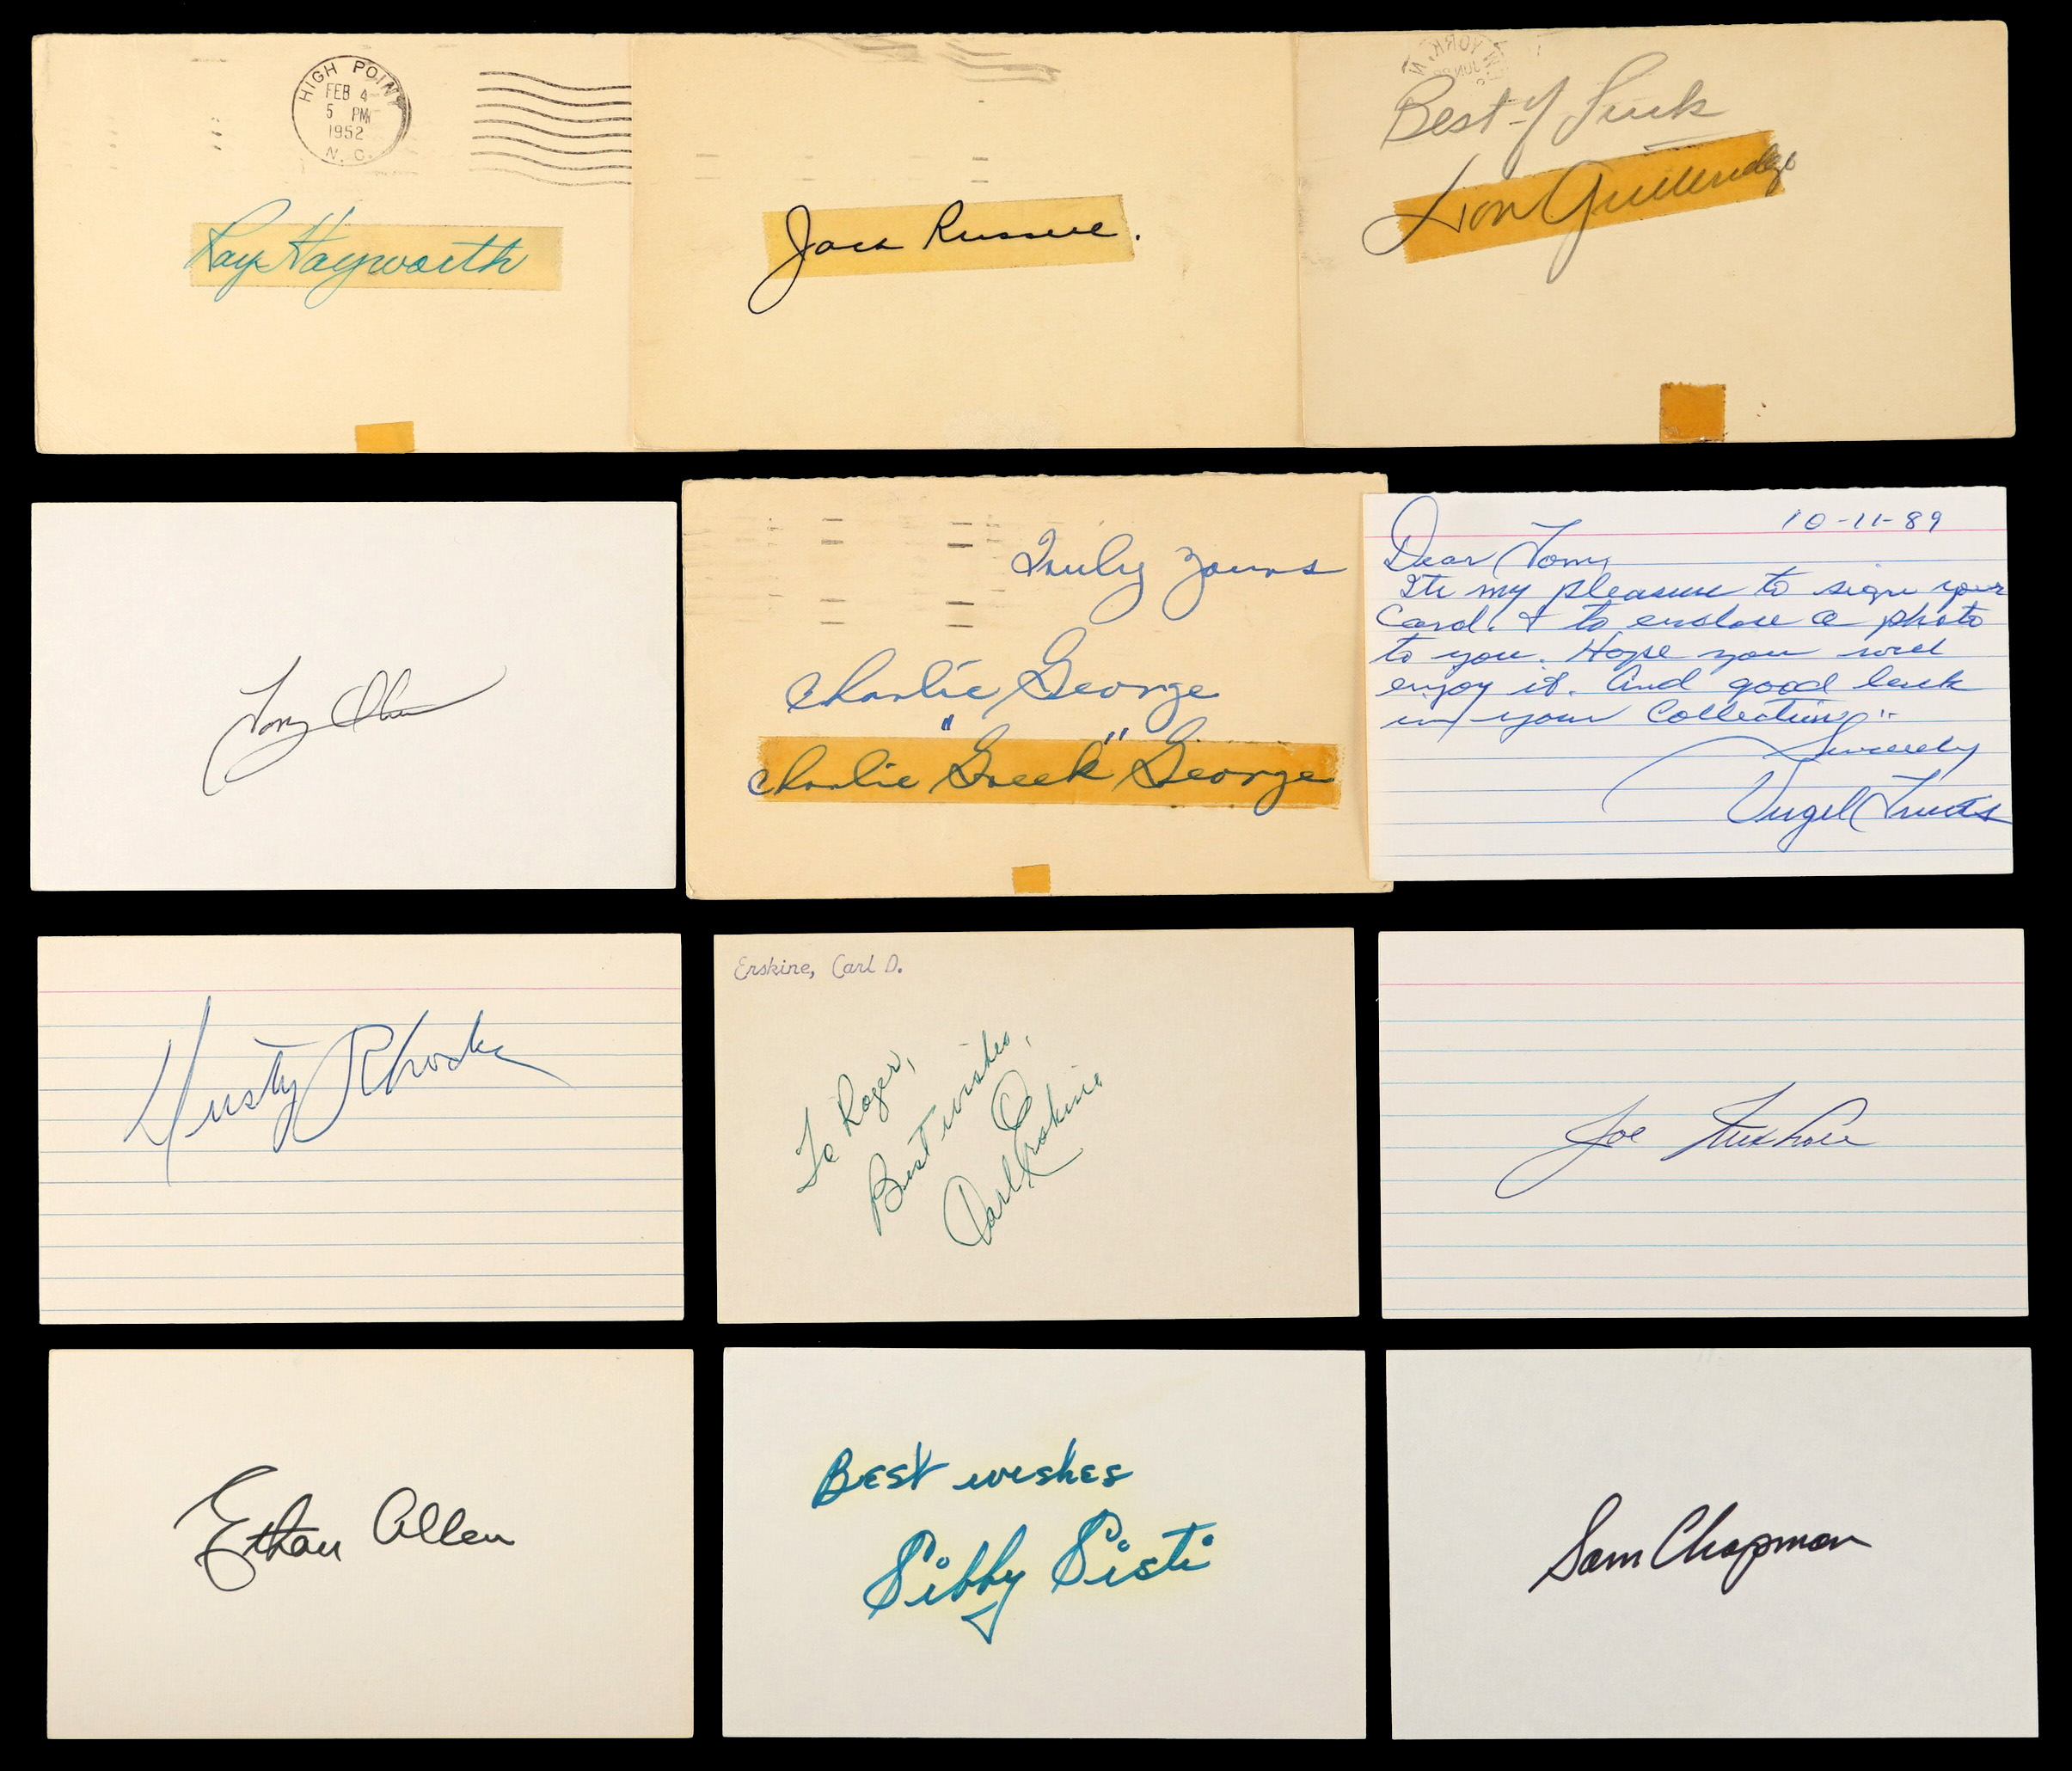 HIGH POINT
FEB 4
5 PM
1952
N. C.
Ray Hayworth
Jack Russell.
YORK, N
JUN
Best of Luck
Don Gutteridge
Tony Oliva
Truly Yours
Charlie George
Charlie "Greek" George
10-11-89
Dear Tom,
Its my pleasure to sign your
Card. & to enclose a photo
to you. Hope you will
enjoy it. And good luck
in your Collecting
Sincerely
Virgil Trucks
Dusty Rhodes
Erskine, Carl D.
To Roger,
Best wishes,
Carl Erskine
Joe Nuxhall
Ethan Allen
BEST wishes
Sibby Sisti
Sam Chapman